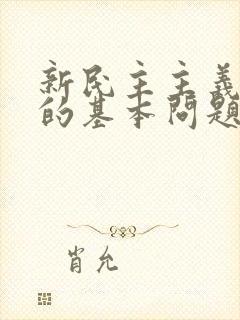 新民主主義
的基本問題
肖允